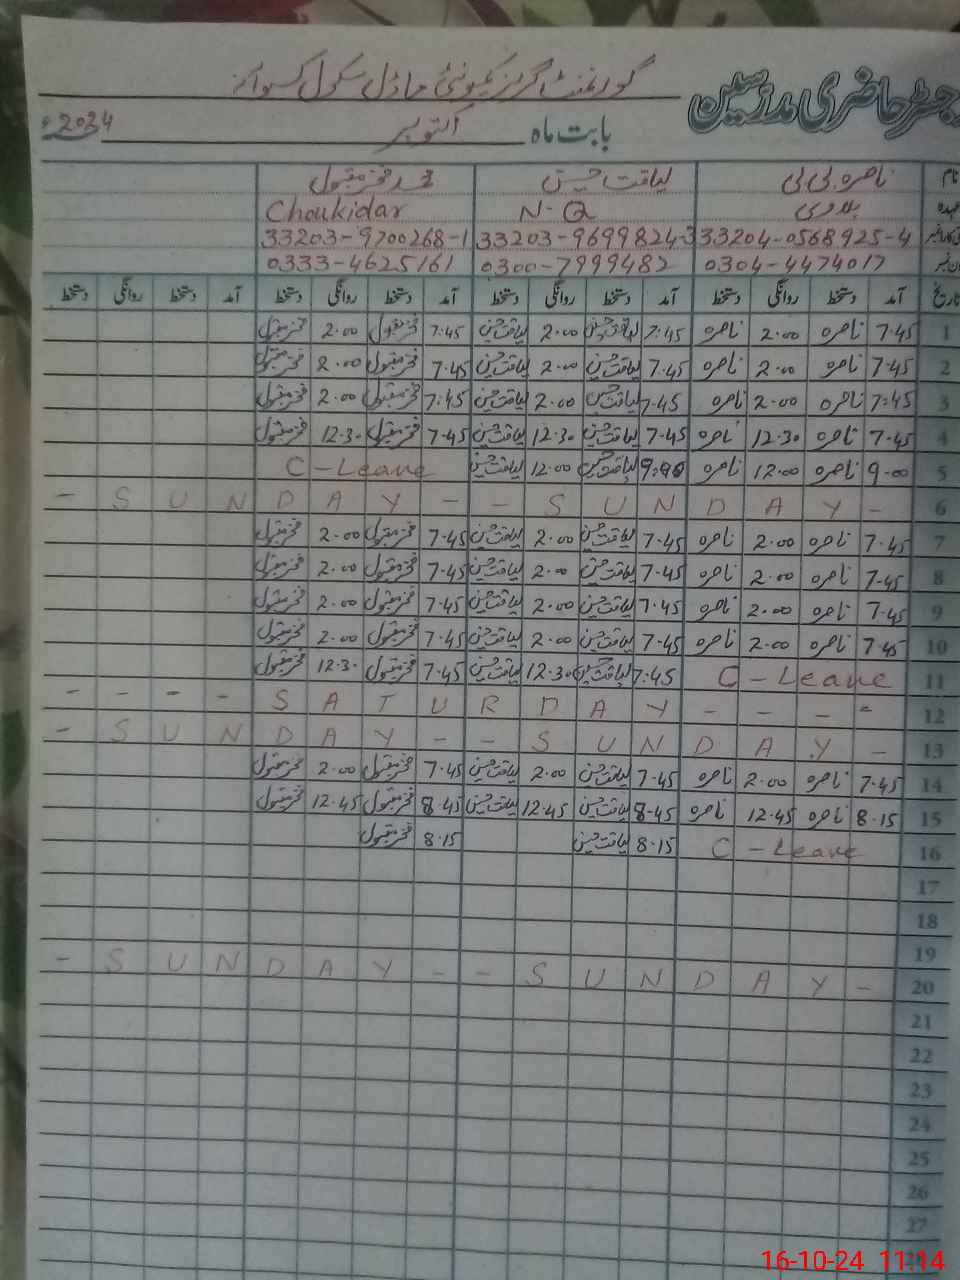 رجسٹر حاضری مدرسین گورنمنٹ گرلز کمیونٹی ماڈل سکول
بابت ماہ اکتوبر 2024ء
نام ناصرہ بی بی لیاقت حسین محمد فخر مقبول
عہدہ N-Q Choukidar
33204-0568925-4 33203-9699824-3 33203-9700268-1
0304-4474017 0300-7999482 0333-4625161
تاریخ آمد دستخط روانگی دستخط آمد دستخط روانگی دستخط آمد دستخط روانگی دستخط آمد دستخط روانگی دستخط
1 7.45 ناصرہ 2.00 ناصرہ 7.45 لیاقت حسین 2.00 لیاقت حسین 7.45 فخر مقبول 2.00 فخر مقبول
2 7.45 ناصرہ 2.00 ناصرہ 7.45 لیاقت حسین 2.00 لیاقت حسین 7.45 فخر مقبول 2.00 فخر مقبول
3 7.45 ناصرہ 2.00 ناصرہ 7.45 لیاقت حسین 2.00 لیاقت حسین 7.45 فخر مقبول 2.00 فخر مقبول
4 7.45 ناصرہ 12.30 ناصرہ 7.45 لیاقت حسین 12.30 لیاقت حسین 7.45 فخر مقبول 12.30 فخر مقبول
5 9.00 ناصرہ 12.00 ناصرہ 9.00 لیاقت حسین 12.00 لیاقت حسین C-Leave
6 - S U N D A Y - - S U N D A Y -
7 7.45 ناصرہ 2.00 ناصرہ 7.45 لیاقت حسین 2.00 لیاقت حسین 7.45 فخر مقبول 2.00 فخر مقبول
8 7.45 ناصرہ 2.00 ناصرہ 7.45 لیاقت حسین 2.00 لیاقت حسین 7.45 فخر مقبول 2.00 فخر مقبول
9 7.45 ناصرہ 2.00 ناصرہ 7.45 لیاقت حسین 2.00 لیاقت حسین 7.45 فخر مقبول 2.00 فخر مقبول
10 7.45 ناصرہ 2.00 ناصرہ 7.45 لیاقت حسین 2.00 لیاقت حسین 7.45 فخر مقبول 2.00 فخر مقبول
11 C-Leave 7.45 لیاقت حسین 12.30 لیاقت حسین 7.45 فخر مقبول 12.30 فخر مقبول
12 - - - - S A T U R D A Y - - - -
13 - S U N D A Y - - S U N D A Y -
14 7.45 ناصرہ 2.00 ناصرہ 7.45 لیاقت حسین 2.00 لیاقت حسین 7.45 فخر مقبول 2.00 فخر مقبول
15 8.15 ناصرہ 12.45 ناصرہ 8.45 لیاقت حسین 12.45 لیاقت حسین 8.45 فخر مقبول 12.45 فخر مقبول
16 C-Leave 8.15 لیاقت حسین 8.15 فخر مقبول
17
18
19
20 - S U N D A Y - - S U N D A Y -
21
22
23
24
25
26
27
16-10-24 11:14